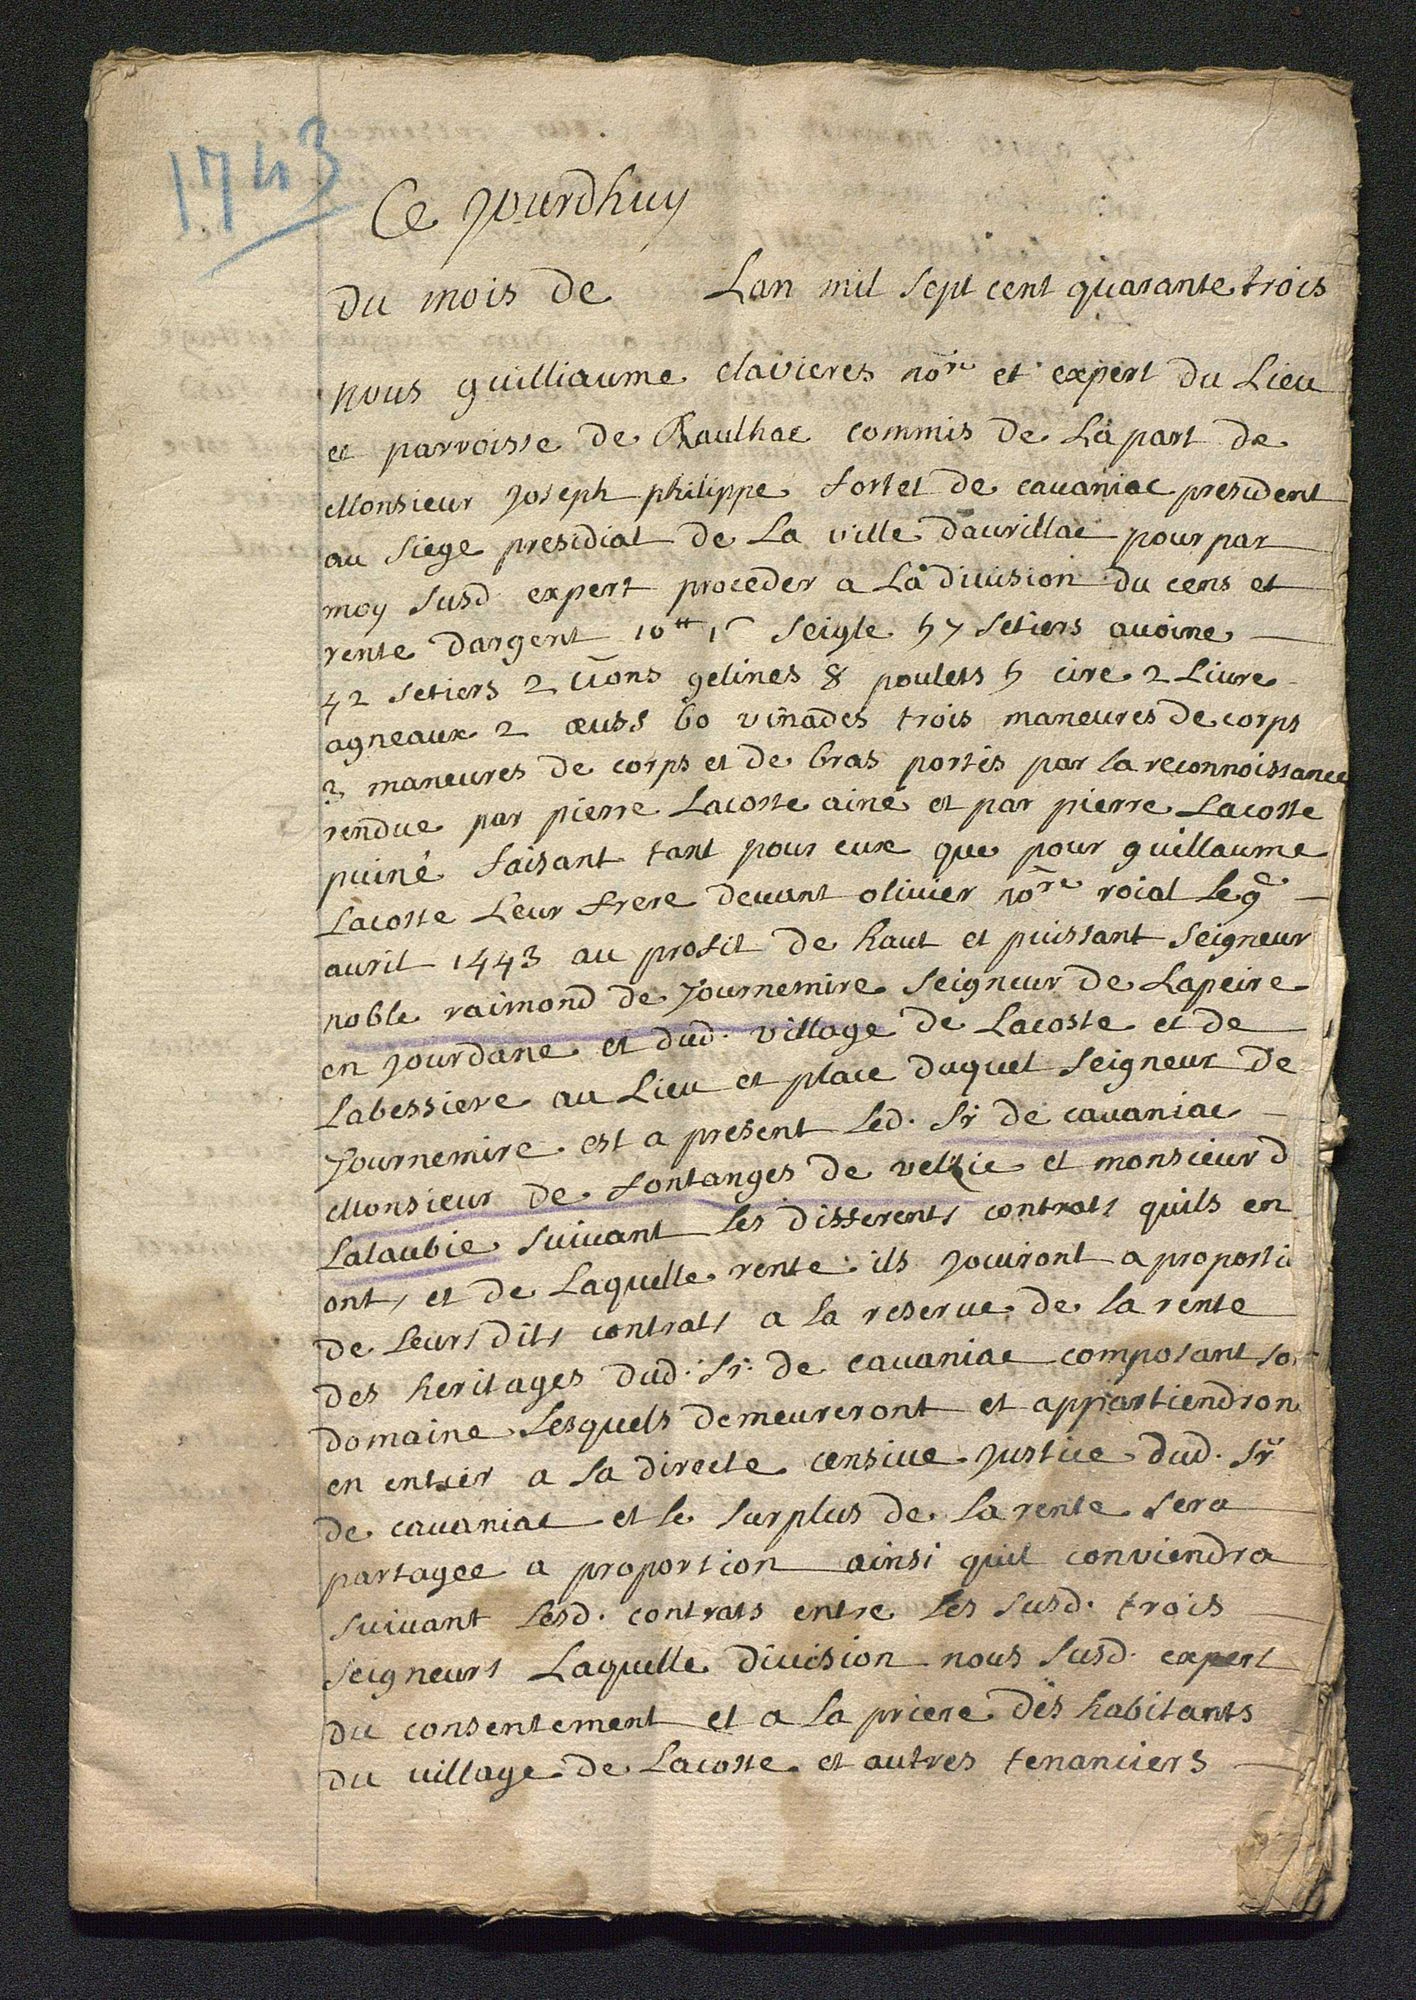 1743
Ce jourdhuy
du mois de Lan mil sept cent quarante trois
nous guilliaume clavieres nore et expert du Lieu
et parroisse de Raulhac commis de La part de
Monsieur joseph philippe fortet de cavaniac president
au siege presidial de La ville daurillac pour par
moy susd. expert proceder a La division du cens et
rente dargent 10tt 1s seigle 57 setiers avoine
42 setiers 2 gelines 8 poulets 5 cire 2 Livre
agneaux 2 œufs 60 vinades trois maneures de corps
3 maneures de corps et de bras portés par la reconnoissance
rendue par pierre Lacoste ainé et par pierre Lacoste
puiné faisant tant pour eux que pour guillaume
Lacoste Leur frere devant olivier nore roial Le 9e
avril 1443 au profit de haut et puissant seigneur
noble raimond de journemire seigneur de Lapeire
en jourdane et dud. village de Lacoste et de
Labessiere au Lieu et place duquel seigneur de
journemire est a present Led. sr de cavaniac
Monsieur de fontanges de velzie et monsieur d
Lalaubie suivant les differents contrats quils en
ont, et de Laquelle rente ils jouiront a proportio
de leurs dits contrats a la reserve de la rente
des heritages dud. sr. de cavaniac composant so
domaine Lesquels demeureront et appartiendron
en entier a sa directe censive justice dud. sr
de cavaniac et le surplus de la rente sera
partagee a proportion ainsi quil conviendra
suivant Lesd. contrats entre Les susd. trois
seigneurs Laquelle division nous susd. expert
du consentement et a La priere des habitants
du village de Lacoste et autres tenanciers